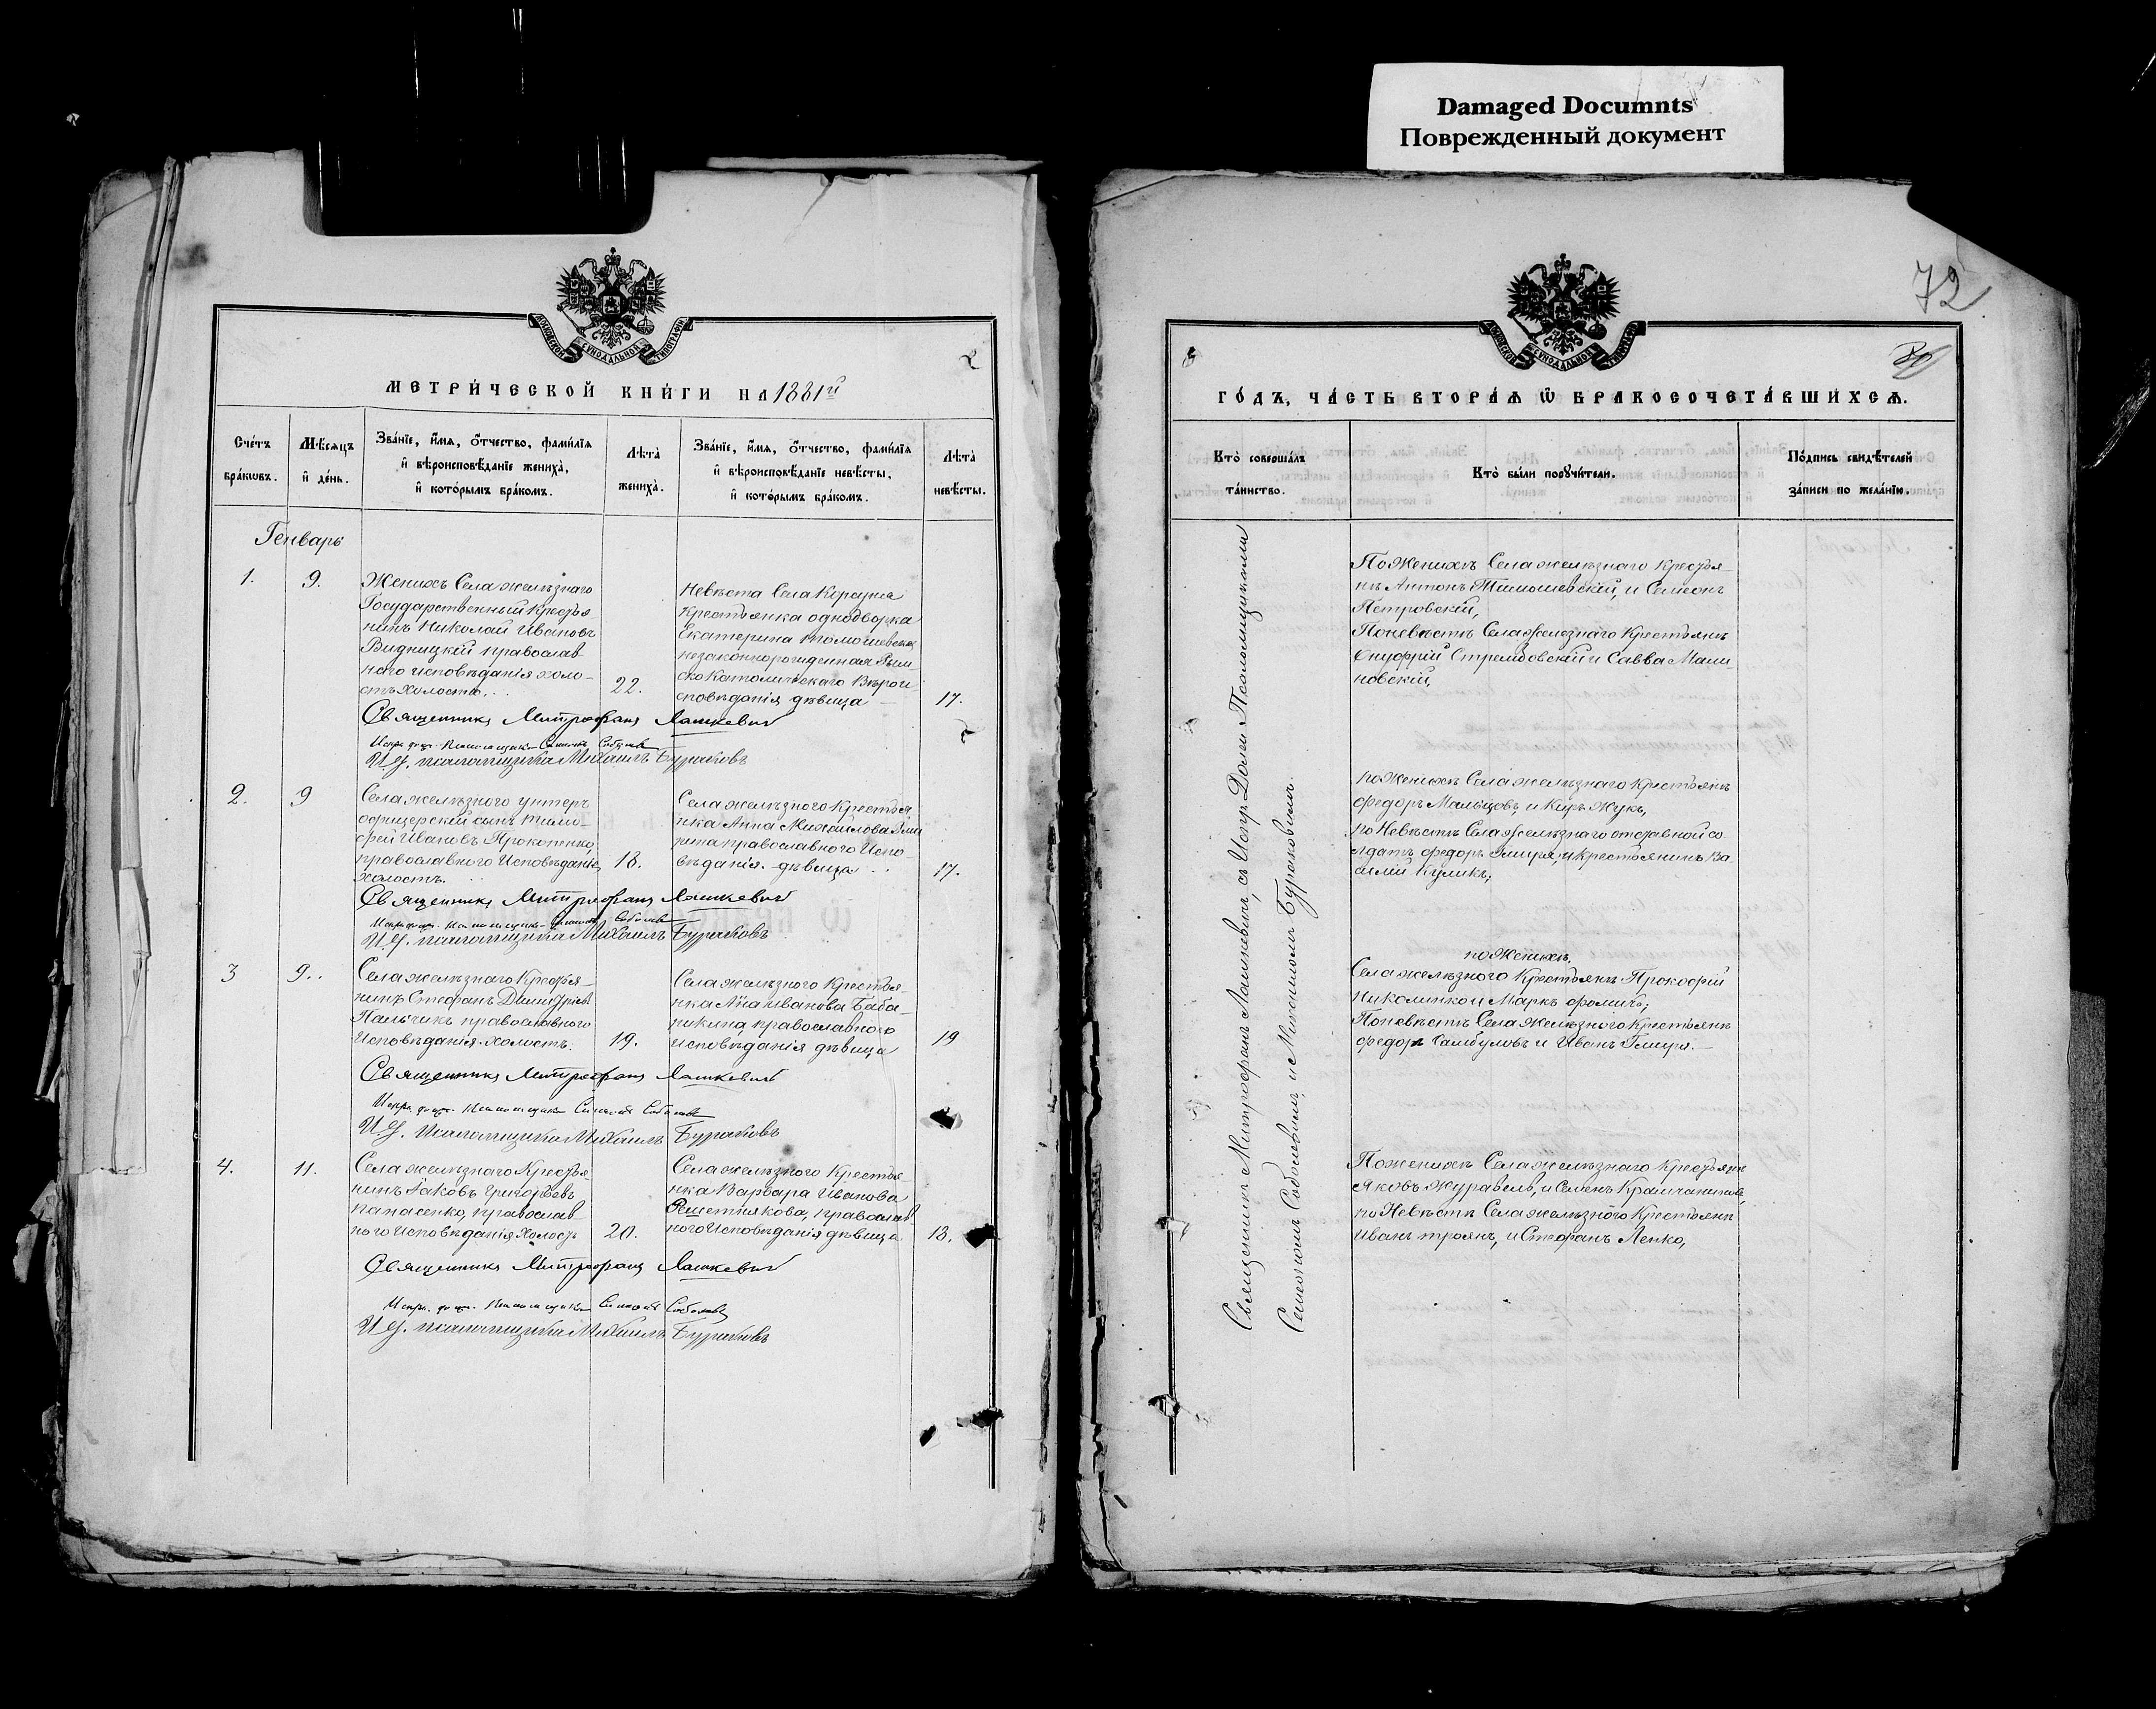 Damaged Documnts
Поврежденный документ
МОСКОВСКОЙ СѴНОДАЛЬНОЙ ТИПОГРАФІИ
2
МЕТРИ́ЧЕСКОЙ КНИ́ГИ НА 1881й
Сче́тъ
бра́кѡвъ.
Мѣ́сяцъ
и҆ де́нь.
Зва́нїе, и҆́мѧ, ѻ҆́тчество, фами́лїѧ
и҆ вѣроисповѣ́данїе жениха̀,
и҆ кото́рымъ бра́комъ.
Лѣта̀
жениха̀.
Зва́нїе, и҆́мѧ, ѻ҆́тчество, фами́лїѧ
и҆ вѣроисповѣ́данїе невѣ́сты,
и҆ кото́рымъ бра́комъ.
Лѣта̀
невѣ́сты.
Генварь
1.
9.
Женихъ Села желѣзнаго
Государственный Крестья
нинъ Николай Ивановъ
Видницкій православ
наго исповѣданія холо-
стъ
22.
Невѣста Села Корсуна
Крестьянка однодворка
Екатерина
незаконнорожденная Рим
ско Католическаго Вѣрои
сповѣданія дѣвица
17.
Священникъ Митрофанъ Лашкевичъ
Псаломщикъ Симеонъ
И. д. псаломщика Михаилъ Бураковъ
2.
9
Села желѣзного унтеръ
офицерскій сынъ Тимо-
фей Ивановъ Прокопенко,
православного Исповѣданія,
холостъ.
18.
Села желѣзного Крестья
нка Анна Михайлова
православного Испо
вѣданія. дѣвица
17.
Священникъ Митрофанъ Лашкевичъ
Псаломщикъ Симеонъ
И. д. псаломщика Михаилъ Бураковъ
3
9..
Села желѣзнаго Крестья-
нинъ Стефанъ Димитріевъ
Пальчикъ православного
Исповѣданія. холостъ.
19.
Села желѣзного Крестья
нка Анна Иванова Баба-
никина православного
исповѣданія дѣвица
19
Священникъ Митрофанъ Лашкевичъ
Псаломщикъ Симеонъ
И. д. Псаломщика Михаилъ Бураковъ
4.
11.
Села желѣзнаго Крестья
нинъ Іаковъ Григорьевъ
Панасенко, православ
ного Исповѣданія Холостъ
20.
Села желѣзного Крестья
нка Варвара Иванова
Решетнякова, православ
ного Исповѣданія дѣвица
18.
Священникъ Митрофанъ Лашкевичъ
Псаломщикъ Симеонъ
И. д. псаломщика Михаилъ Бураковъ
72
МОСКОВСКОЙ СѴНОДАЛЬНОЙ ТИПОГРАФІИ
ГО́ДЪ, ЧА́СТЬ ВТОРА́Ѧ Ѽ БРАКОСОЧЕТА́ВШИХСѦ.
Кто̀ соверша́лъ
та́инство.
Кто̀ бы́ли порꙋчи́тели.
По́дпись свидѣ́телей
за́писи по жела́нїю.
Священникъ Митрофанъ Лашкевичъ, съ Испр. Долж. Псаломщиками
Семеономъ Соболевымъ, и Михаиломъ Бураковымъ.
По Женихѣ Села желѣзнаго Крестья-
нъ Антонъ Тимошевскій, и Симеонъ
Петровскій,
По невѣстѣ Села Железнаго Крестьянъ
Онуфрій Стрембовскій и Савва Мали-
новскій,
по Женихѣ Села желѣзнаго крестьянъ
Федоръ Мальцовъ, и Киръ Жукъ,
по Невѣстѣ Села Желѣзнаго отставной со
лдатъ Федоръ Гмиря, и крестьянинъ Ва
силій Куликъ;
по Женихѣ,
Села желѣзного Крестьянъ Прокофій
Николинко и Маркъ Фомичъ;
По невѣстѣ Села Желѣзного Крестьянъ
Федоръ Самбуловъ и Иванъ Гмиря.-
По женихѣ Села желѣзнаго Крестьянъ
Яковъ Журавель, и Семенъ
по Невѣстѣ Села желѣзного Крестьянъ
Иванъ Троянъ, и Стефанъ Лепко,